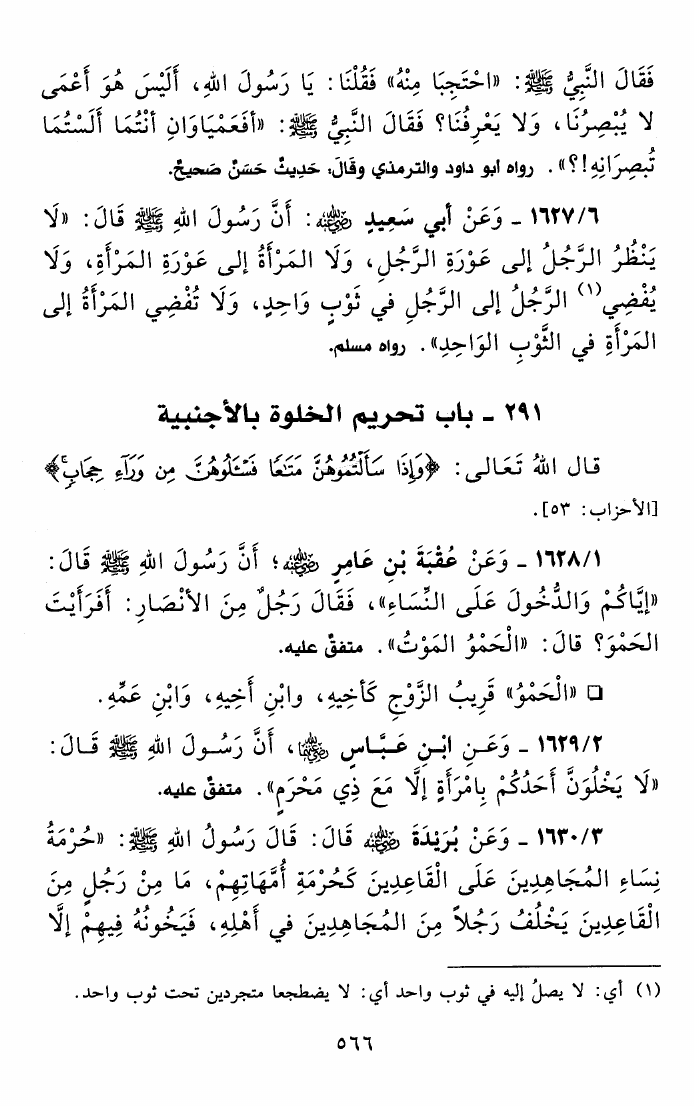 فَقَالَ النَّبِيُّ ﷺ: «احْتَجِبَا مِنْهُ» فَقُلْنَا: يَا رَسُولَ اللهِ، أَلَيْسَ هُوَ أَعْمَى
لا يُبْصِرُنَا، وَلا يَعْرِفُنَا؟ فَقَالَ النَّبِيُّ ﷺ: «أَفَعَمْيَاوَانِ أَنْتُمَا أَلَسْتُمَا
تُبصِرَانِهِ!؟». رواه أبو داود والترمذي وقَالَ: حَدِيثٌ حَسَنٌ صَحيحٌ.
١٦٢٧/٦ - وَعَنْ أبي سَعِيدٍ رضي الله عنه: أَنَّ رَسُولَ اللهِ ﷺ قَالَ: «لَا
يَنْظُرُ الرَّجُلُ إلى عَوْرَةِ الرَّجُلِ، وَلَا المَرْأَةُ إلى عَوْرَةِ المَرْأَةِ، وَلَا
يُفْضِي(١) الرَّجُلُ إلى الرَّجُلِ في ثَوْبٍ وَاحِدٍ، وَلَا تُفْضِي المَرْأَةُ إلى
المَرْأَةِ في الثَّوْبِ الوَاحِدِ». رواه مسلم.
٢٩١ - باب تحريم الخلوة بالأجنبية
قال اللهُ تَعَالى: ﴿وَإِذَا سَأَلْتُمُوهُنَّ مَتَٰعًا فَسْـَٔلُوهُنَّ مِن وَرَآءِ حِجَابٍۚ﴾
[الأحزاب: ٥٣].
١٦٢٨/١ - وَعَنْ عُقْبَةَ بْنِ عَامِرٍ رضي الله عنه؛ أَنَّ رَسُولَ اللهِ ﷺ قَالَ:
«إيَّاكُمْ وَالدُّخُولَ عَلَى النِّسَاءِ»، فَقَالَ رَجُلٌ مِنَ الأنْصَارِ: أَفَرَأَيْتَ
الحَمْوَ؟ قالَ: «الْحَمْوُ المَوْتُ». متفقٌ عليه.
❑ «الْحَمْوُ» قَرِيبُ الزَّوْجِ كَأخِيهِ، وابْنِ أَخِيهِ، وَابْنِ عَمِّهِ.
١٦٢٩/٢ - وَعَـنِ ابْـنِ عَـبَّـاسٍ رضي الله عنهما، أَنَّ رَسُـولَ اللهِ ﷺ قَـالَ:
«لَا يَخْلُوَنَّ أَحَدُكُمْ بِامْرَأَةٍ إلَّا مَعَ ذِي مَحْرَمٍ». متفقٌ عليه.
١٦٣٠/٣ - وَعَنْ بُرَيْدَةَ رضي الله عنه قَالَ: قَالَ رَسُولُ اللهِ ﷺ: «حُرْمَةُ
نِسَاءِ المُجَاهِدِينَ عَلَى الْقَاعِدِينَ كَحُرْمَةِ أُمَّهَاتِهِمْ، مَا مِنْ رَجُلٍ مِنَ
الْقَاعِدِينَ يَخْلُفُ رَجُلاً مِنَ المُجَاهِدِينَ في أَهْلِهِ، فَيَخُونُهُ فِيهِمْ إلَّا
(١) أي: لا يصلُ إليه في ثوب واحد أي: لا يضطجعا متجردين تحت ثوب واحد.
٥٦٦